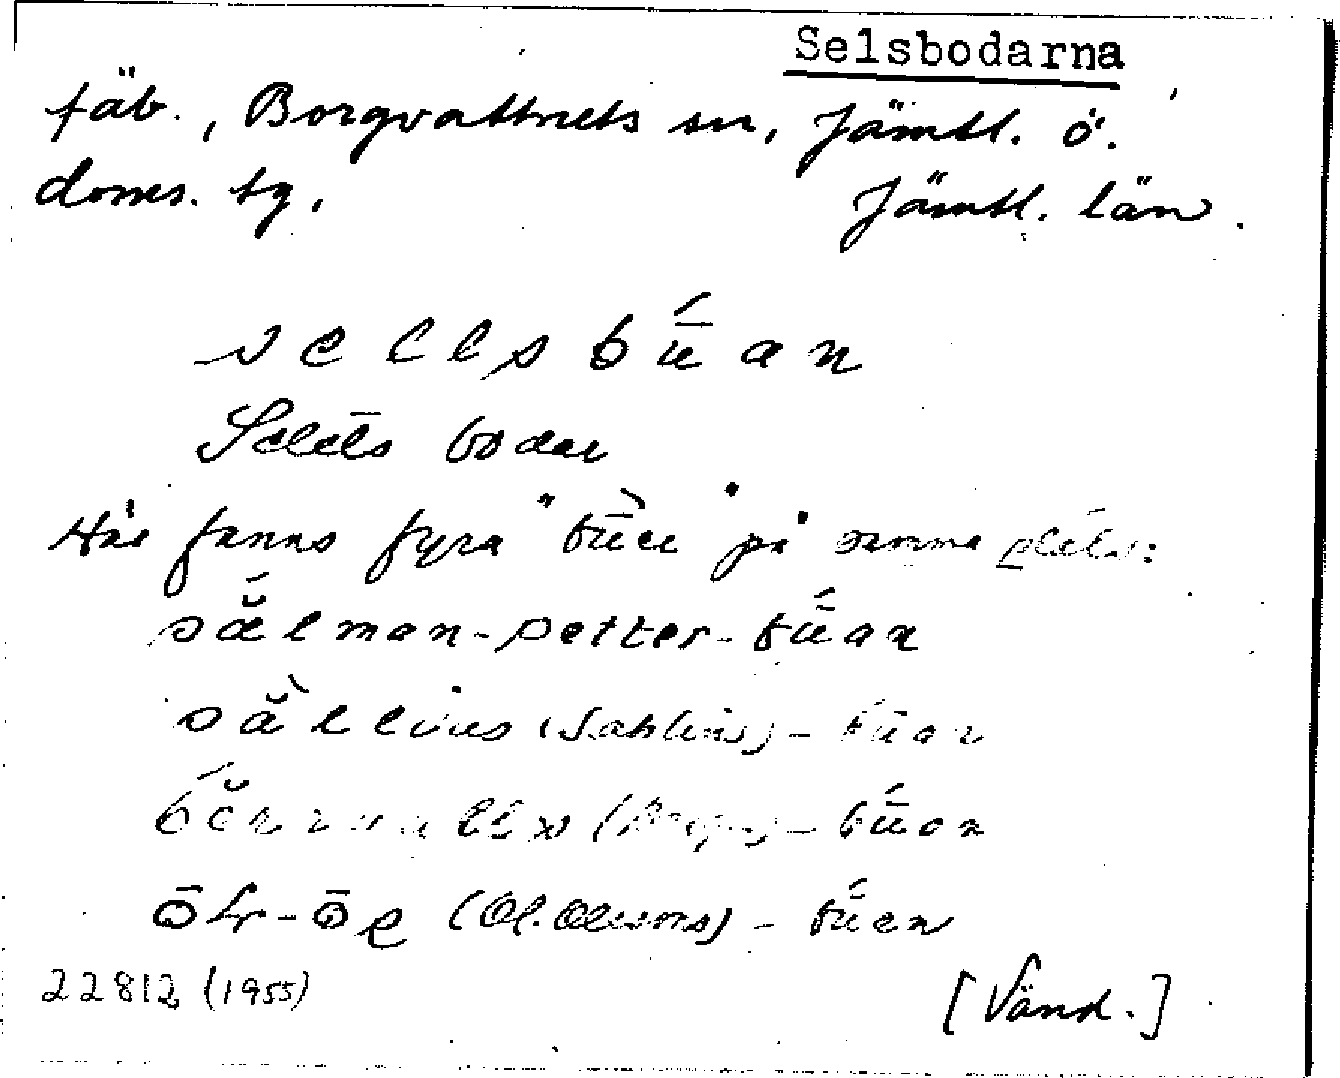 Selsbodarna
fäb., Borgvattnets sn, Jämtl. ö.
doms. tg, Jämtl. län.
sellsbū́an
Selets bodar
Här fanns fyra "bū̀er" på samma plats:
sæ̆́lman-petter-bū́an
sằllius (Sahlins)-bū́an
(        )-bū́an
ōlr-ōl (Ol. Olssons)-bū́an
22812 (1955) [Vänd.]